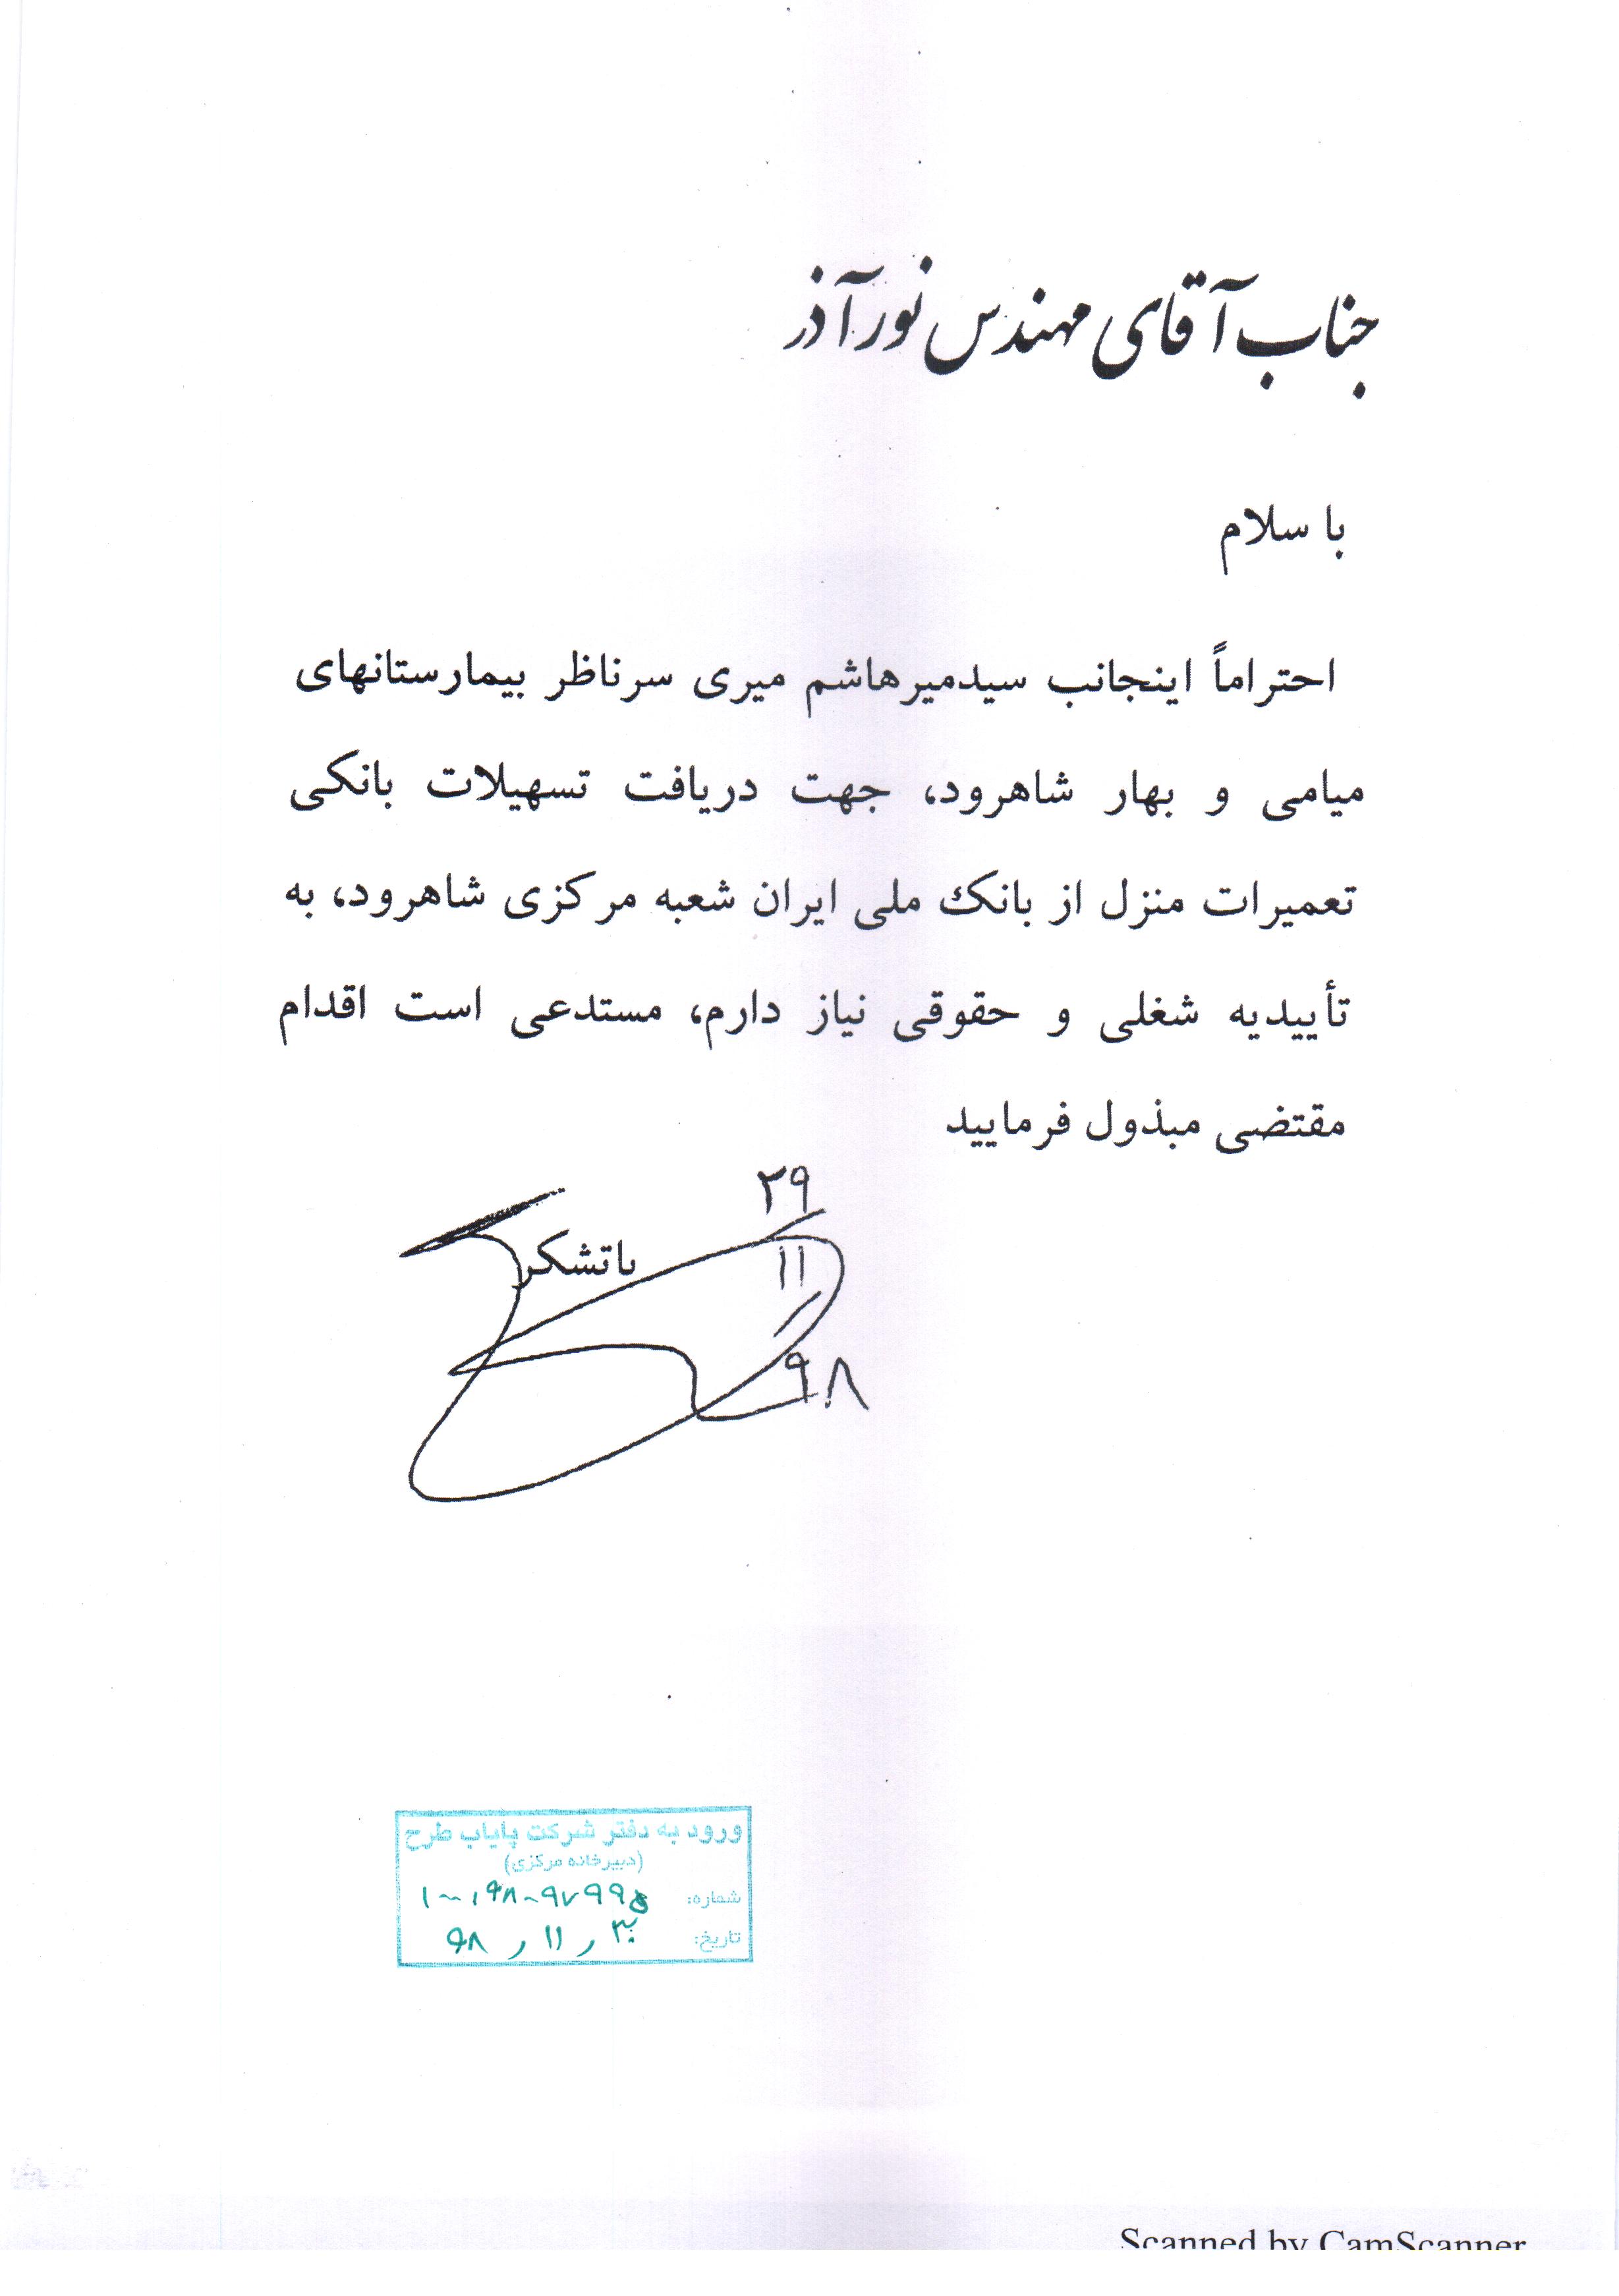 جناب آقای مهندس نورآذر
با سلام
احتراماً اینجانب سیدمیرهاشم میری سرناظر بیمارستانهای
میامی و بهار شاهرود، جهت دریافت تسهیلات بانکی
تعمیرات منزل از بانک ملی ایران شعبه مرکزی شاهرود، به
تأییدیه شغلی و حقوقی نیاز دارم، مستدعی است اقدام
مقتضی مبذول فرمایید
باتشکر
۲۹
۱۱
۹۸
ورود به دفتر شرکت پایاب طرح
(دبیرخانه مرکزی)
شماره:
تاریخ: ۳۰ / ۱۱ / ۹۸
Scanned by CamScanner